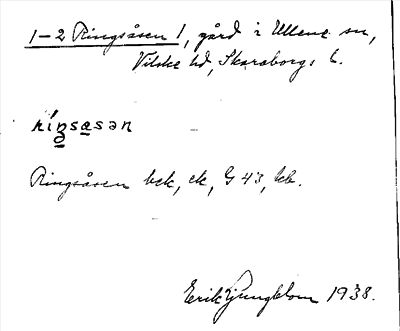 1-2 Ringsåsen 1, gård i Ullene sn,
Vilske hd, Skaraborgs l.
Ringsåsen bek, ek, G 43, hb.
Erik Ljungblom 1938.